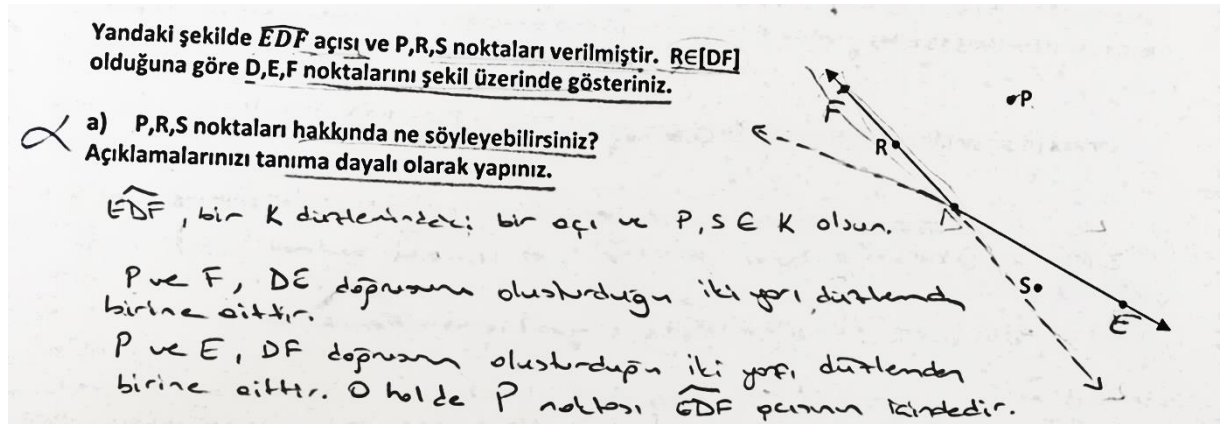 Yandaki şekilde EDF açısı ve P,R,S noktaları verilmiştir. R∈[DF]
olduğuna göre D,E,F noktalarını şekil üzerinde gösteriniz.
a) P,R,S noktaları hakkında ne söyleyebilirsiniz?
Açıklamalarınızı tanıma dayalı olarak yapınız.
EDF, bir K düzlemindeki bir açı ve P, S ∈ K olsun.
P ve F, DE doğrusunun oluşturduğu iki yarı düzlemden
birine aittir.
P ve E, DF doğrusunun oluşturduğu iki yarı düzlemden
birine aittir. O halde P noktası EDF açısının içindedir.
P
F
R
D
S
E